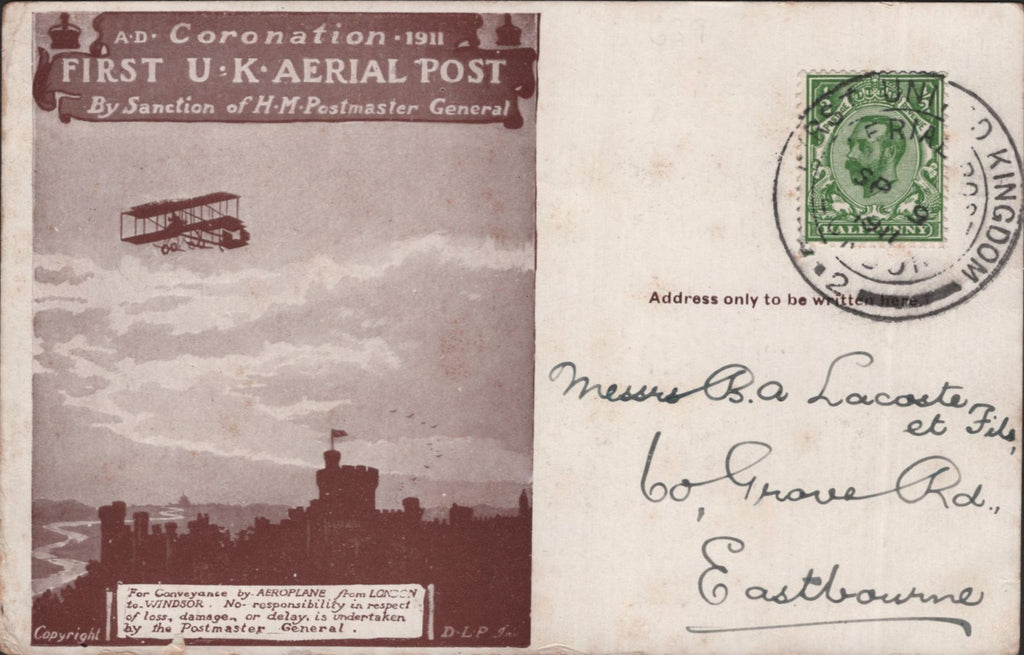 A·D· Coronation · 1911
FIRST U·K·AERIAL POST
By Sanction of H·M·Postmaster General
For Conveyance by AEROPLANE from LONDON
to WINDSOR. No responsibility in respect
of loss, damage, or delay, is undertaken
by the Postmaster General.
Copyright
D·L·P
UNITED KINGDOM
AERIAL POST
SP 9
1911
2
HALFPENNY
Address only to be written here.
Messrs B.A Lacoste
et Fils,
60, Grove Rd.,
Eastbourne